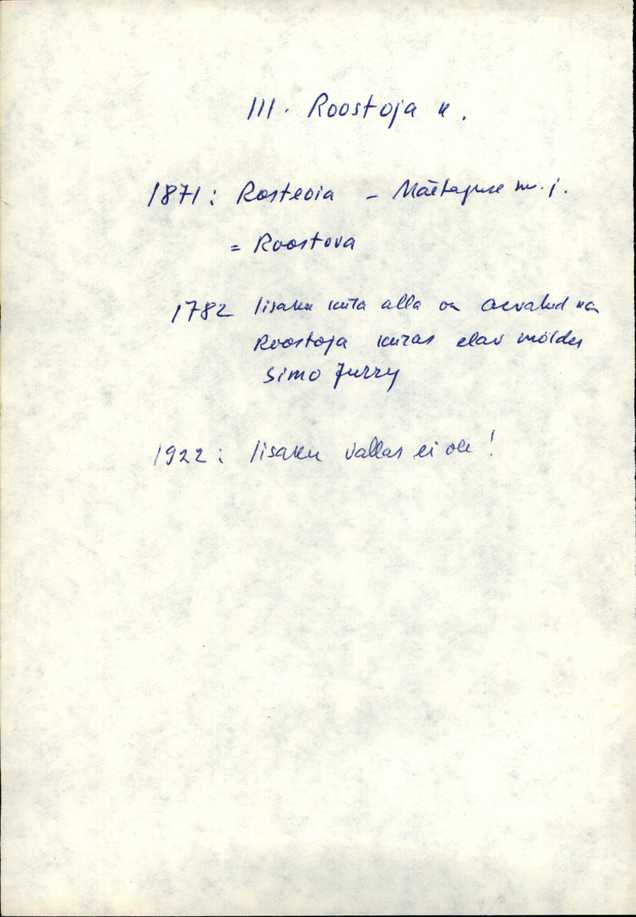 III. Roostoja k.
1871: Rosteoia – Mäetaguse m. j.
= Roostova
1782 Iisaku küla alla on arvatud ka
Roostoja külas elav mölder
Simo Jurry
1922: Iisaku vallas ei ole!